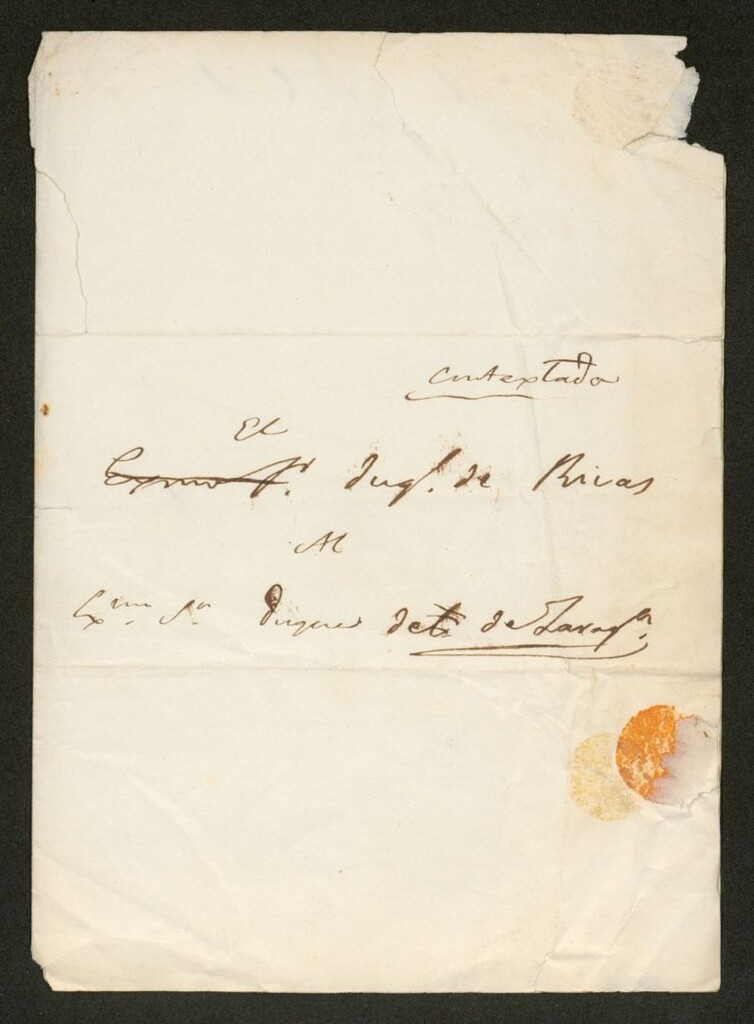 Contextado
El
Exmo Sr. Duqe. de Rivas
Al
Exmo. Sr. Duque de de Zaragza.